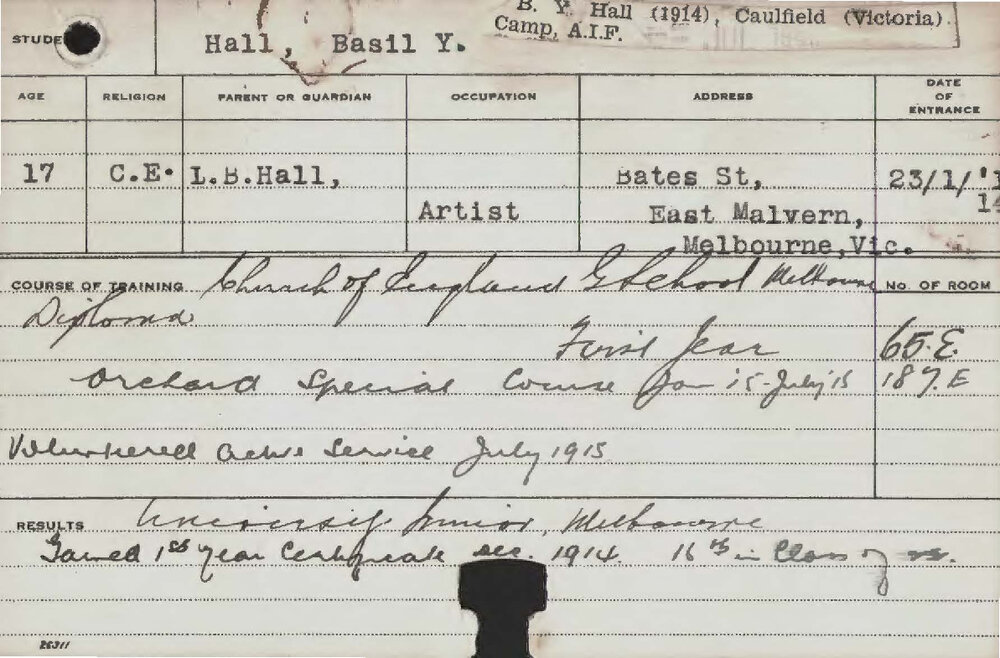 B. Y. Hall (1914), Caulfield (Victoria).
Camp, A.I.F.
STUDE
Hall, Basil Y.
AGE RELIGION PARENT OR GUARDIAN OCCUPATION ADDRESS DATE OF ENTRANCE
17 C.E. L.B.Hall, Bates St, 23/1/'1
Artist East Malvern, 14
Melbourne, Vic.
COURSE OF TRAINING Church of England G School Melbourne No. OF ROOM
Diploma
First Year 65.E.
Orchard Special Course Jan 15-July '15 187.E
Volunteered Active Service July 1915
RESULTS University Junior, Melbourne
Gained 1st Year Certificate Dec. 1914. 16th in Class of
26311